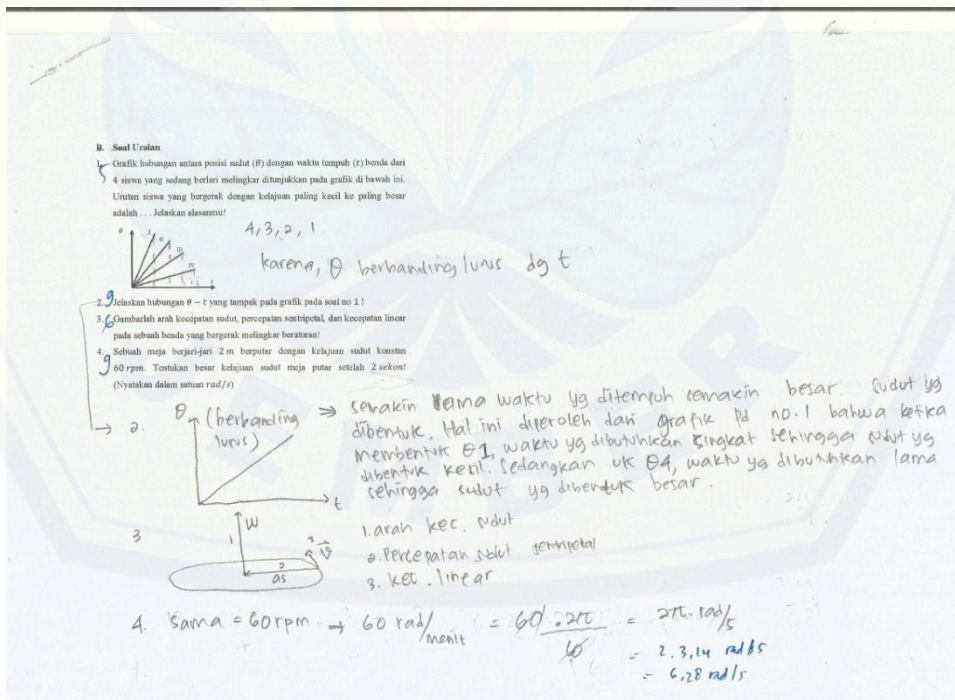 B. Soal Uraian
1. Grafik hubungan antara posisi sudut (θ) dengan waktu tempuh (t) benda dari
4 siswa yang sedang berlari melingkar ditunjukkan pada grafik di bawah ini.
Urutan siswa yang bergerak dengan kelajuan paling kecil ke paling besar
adalah . . . Jelaskan alasanmu!
5
θ
I
II
III
IV
t
4, 3, 2, 1
karena, θ berbanding lurus dg t
2. Jelaskan hubungan θ − t yang tampak pada grafik pada soal no 1 !
9
3. Gambarlah arah kecepatan sudut, percepatan sentripetal, dan kecepatan linear
pada sebuah benda yang bergerak melingkar beraturan!
6
4. Sebuah meja berjari-jari 2 m berputar dengan kelajuan sudut konstan
60 rpm. Tentukan besar kelajuan sudut meja putar setelah 2 sekon!
(Nyatakan dalam satuan rad/s)
9
2.
θ
(berbanding
lurus)
t
⇒ semakin lama waktu yg ditempuh semakin besar sudut yg
dibentuk. Hal ini diperoleh dari grafik pd no. 1 bahwa ketika
membentuk θ1, waktu yg dibutuhkan singkat sehingga sudut yg
dibentuk kecil. Sedangkan uk θ4, waktu yg dibutuhkan lama
sehingga sudut yg dibentuk besar.
3
W
1
2
as
3
v
1. arah kec. sudut
2. Percepatan sentripetal
3. kec. linear
4. Sama = 60 rpm → 60 rad/menit = 60 . 2π / 60 = 2π. rad/s
= 2. 3,14 rad/s
= 6,28 rad/s